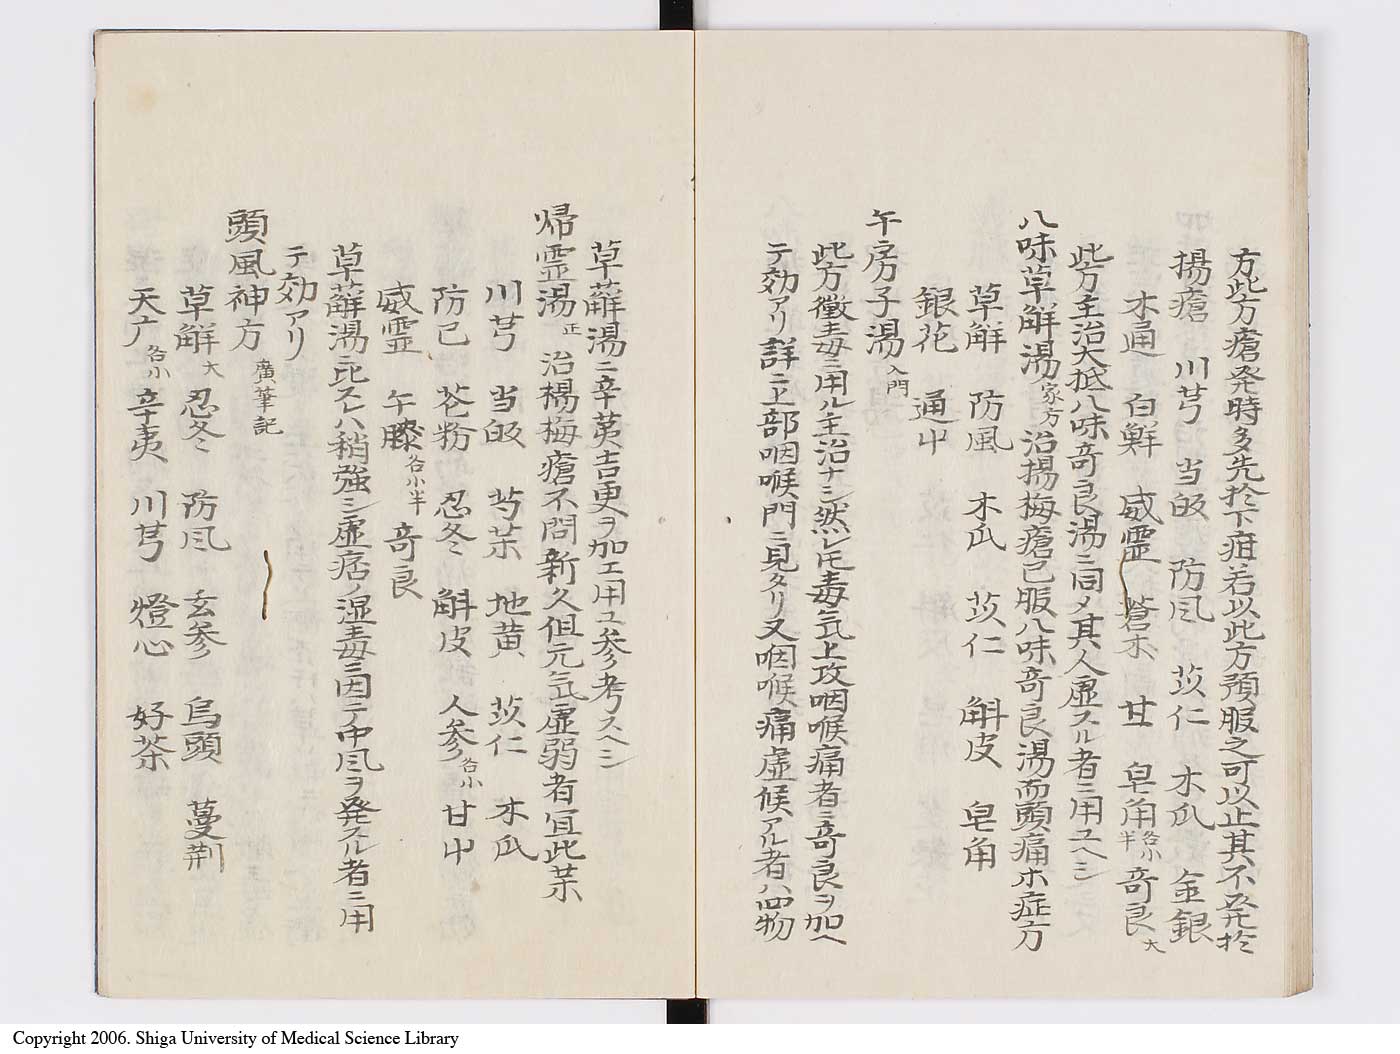 方此方瘡発時多先於下疳若以此方預服之可以止其不発於
揚瘡 川芎 当皈 防風 苡仁 木瓜 金銀
木通 白鮮 威霊 蒼朮 甘 皂角各小半 奇良大
此方主治大抵八味奇良湯ニ同メ其人虚スル者ニ用ユヘシ
八味草解湯家方 治揚梅瘡已服八味奇良湯而頭痛ホ症方
草解 防風 木瓜 苡仁 斛皮 皂角
銀花 通中
牛房子湯入門
此方黴毒ニ用ル主治ナシ然レ𪜈毒気上攻咽喉痛者ニ奇良ヲ加ヘ
テ効アリ詳ニ上部咽喉門ニ見タリ又咽喉痛虚候アル者ハ四物
草薢湯ニ辛荑吉更ヲ加エ用ユ参考スヘシ
帰霊湯正 治楊梅瘡不問新久但元気虚弱者宜此薬
川芎 当皈 芍薬 地黄 苡仁 木瓜
防已 花粉 忍冬 斛皮 人参各小 甘中
威霊 牛膝各小半 奇良
草薢湯ニ比スレハ稍強シ虚痞ノ湿毒ニ因テ中風ヲ発スル者ニ用
テ効アリ
頭風神方 廣筆記
草解大 忍冬 防風 玄参 烏頭 蔓荆
天广各小 辛夷 川芎 燈心 好茶
Copyright 2006. Shiga University of Medical Science Library